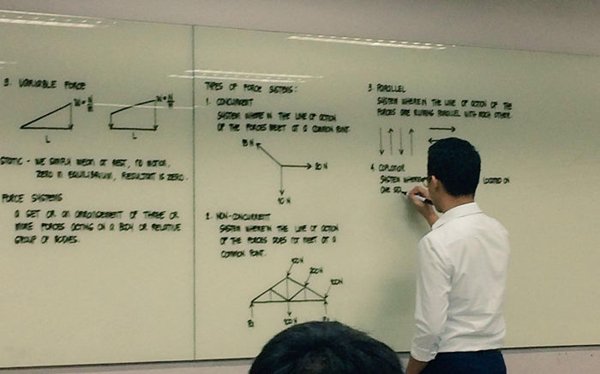 3. VARIABLE FORCE
L
L
STATIC - WE SIMPLY MEAN AT REST, NO MOTION,
ZERO IN EQUILIBRIUM, RESULTANT IS ZERO.
FORCE SYSTEMS
A SET OR AN ARRANGEMENT OF THREE OR
MORE FORCES ACTING ON A BODY OR RELATIVE
GROUP OF BODIES.
TYPES OF FORCE SYSTEMS:
1. CONCURRENT
SYSTEM WHERE IN THE LINE OF ACTION
OF THE FORCES MEET AT A COMMON POINT.
15 N
20 N
10 N
2. NON-CONCURRENT
SYSTEM WHEREIN THE LINE OF ACTION
OF THE FORCES DOES NOT MEET AT A
COMMON POINT.
100N
200N
100N
100N
3. PARALLEL
SYSTEM WHEREIN THE LINE OF ACTION OF THE
FORCES ARE RUNNING PARALLEL WITH EACH OTHER.
4. COPLANAR
SYSTEM WHERE LOCATED ON
ONE